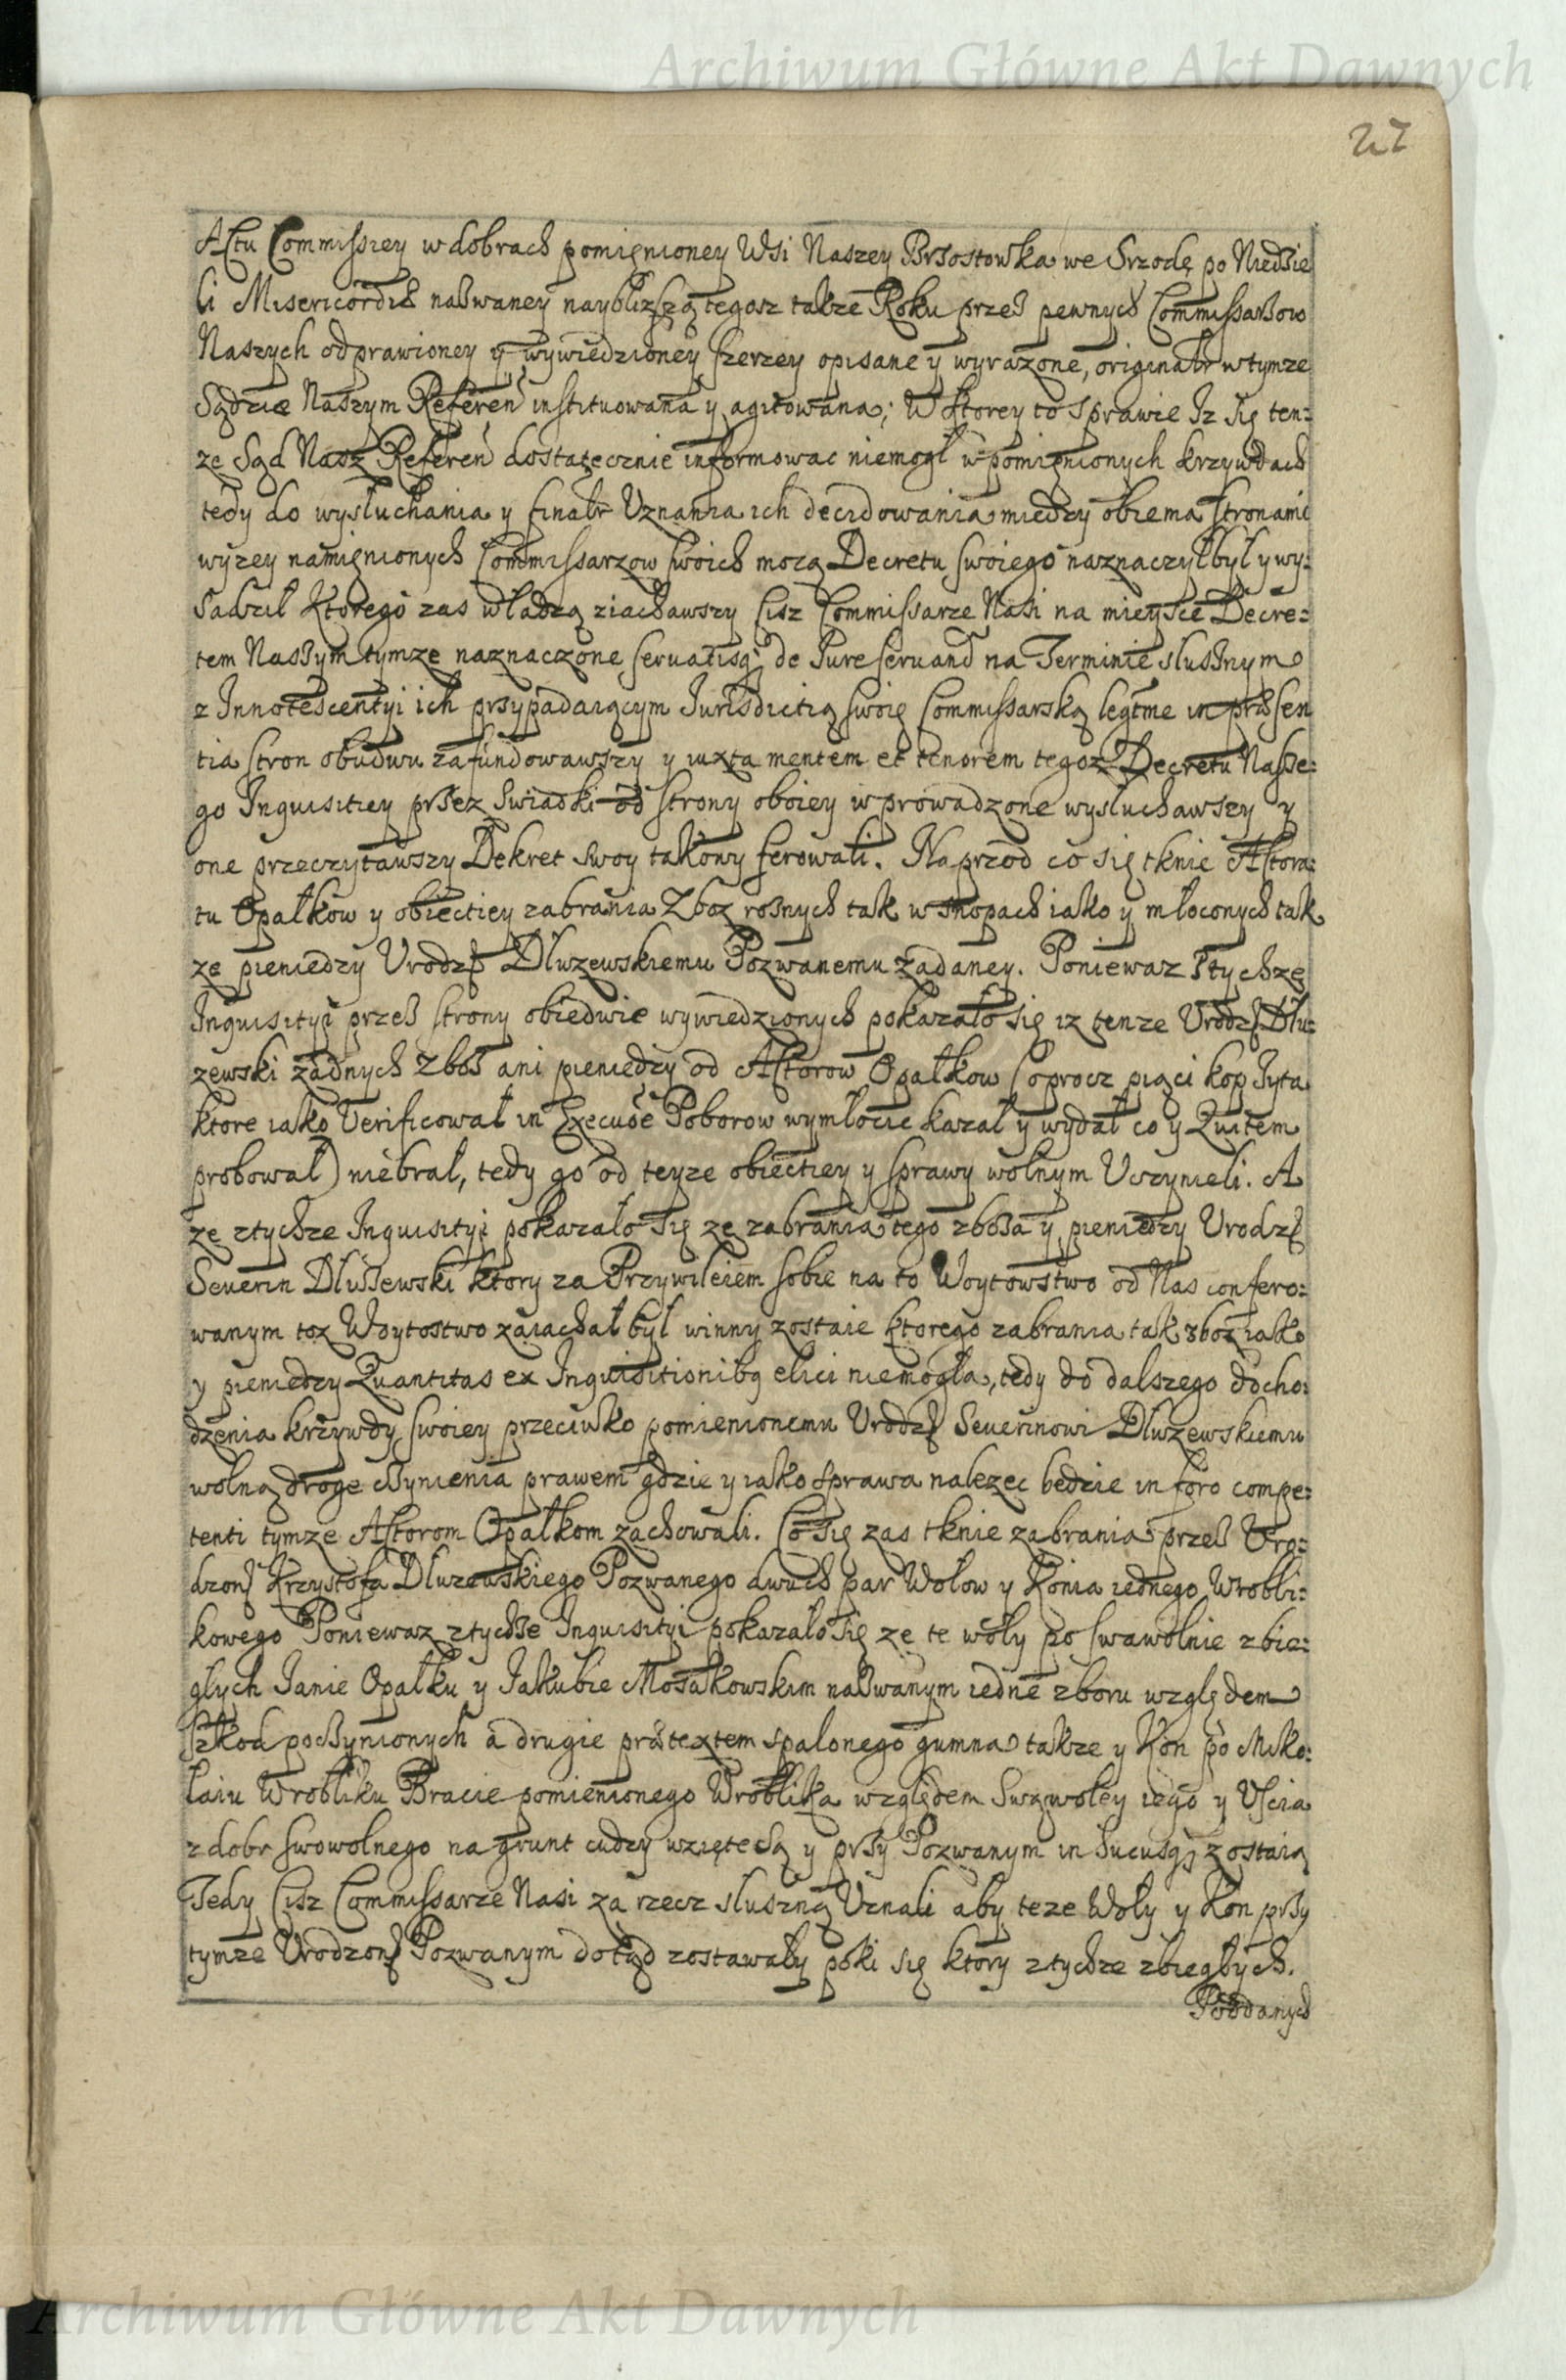 Archiwum Główne Akt Dawnych
27
Actu Commissiey w dobrach pomięnioney Wsi Naszey Brzostowka we Srzodę po Niedzie
li Misericordiæ nazwaney naybliższą tegosz także Roku przez pewnych Commissarzow
Naszych odprawioney y wywiedzioney szerzey opisane y wyrażone, originalr w tymże
Sądzie Naszym Referen instituowana y agitowana; W ktorey to sprawie Iz się ten:
że Sąd Nasz Referen dostatecznie informowac niemogł w pomięnionych krzywdach
tedy do wysłuchania y finalr Uznania ich decidowania między obiema stronami
wyżey namięnionych Commissarzow swoich mocą Decretu swoiego naznaczył był y wy:
sadził Ktorego zas władzą ziachawszy Cisz Commissarze Nasi na mieysce Decre:
tem Naszym tymże naznaczone servatisq de Iure servand na Terminie słusznym
z Innotescentyi ich przypadaiącym Iurisdictią swoię Commissarską legtme in præsen
tia stron obudwu zafundowawszy y iuxta mentem et tenorem tegoż Decretu Nasze:
go Inquisitiey przez Swiadki od strony oboiey wprowadzone wysłuchawszy y
one przeczytawszy Dekret swoy takowy ferowali. Naprzod co się tknie Actora:
tu Opałkow y obiectiey zabrania Zboż roznych tak w snopach iako y młoconych tak
że pieniedzy Urodz Dłużewskiemu Pozwanemu zadaney. Ponieważ z tychże
Inquisityi przez strony obiedwie wywiedzionych pokazało się iz tenże Urodz Dłu:
żewski żadnych zboz ani pieniędzy od Actorow Opałkow (oprocz piąci kop żyta
ktore iako Verificował in Execuoe Poborow wymłocic kazał y wydał co y Quitem
probował) niebrał, tedy go od teyże obiectiey y sprawy wolnym Uczynieli. A
że z tychże Inquisityi pokazało się że zabrania tego zboża y pieniedzy Urodz
Severin Dłużewski ktory za Przywileiem sobie na to Woytowstwo od Nas confero:
wanym toż Woytostwo zaiachał był winny zostaie ktorego zabrania tak zboż iako
y pieniedzy Quantitas ex Inquisitionibq elici niemogła, tedy do dalszego docho:
dzenia krzywdy swoiey przeciwko pomienionemu Urodz Severinowi Dłużewskiemu
wolną droge czynienia prawem gdzie y iako sprawa należec będzie in foro compe:
tenti tymże Actorom Opałkom zachowali. Co się zas tknie zabrania przez Uro:
dzon Krzysztofa Dłużewskiego Pozwanego dwuch par Wołow y Konia iednego Wrobli:
kowego Ponieważ z tychże Inquisityi pokazało się że te woły po swawolnie zbie:
głych Ianie Opałku y Iakubie Mosakowskim nazwanym iedne zboru względem
szkod poczynionych a drugie prætextem spalonego gumna także y Kon po Miko:
łaiu Wrobliku Bracie pomienionego Wroblika względem Swąwoley iego y Uscia
z dobr swowolnego na grunt cudzy wzięte są y przy Pozwanym in zostaią
Tedy Cisz Commissarze Nasi za rzecz słuszną Uznali aby teże Woły y Kon przy
tymże Urodzon Pozwanym dotąd zostawały poki się ktory z tychże zbiegłych.
Poddanych
Archiwum Główne Akt Dawnych